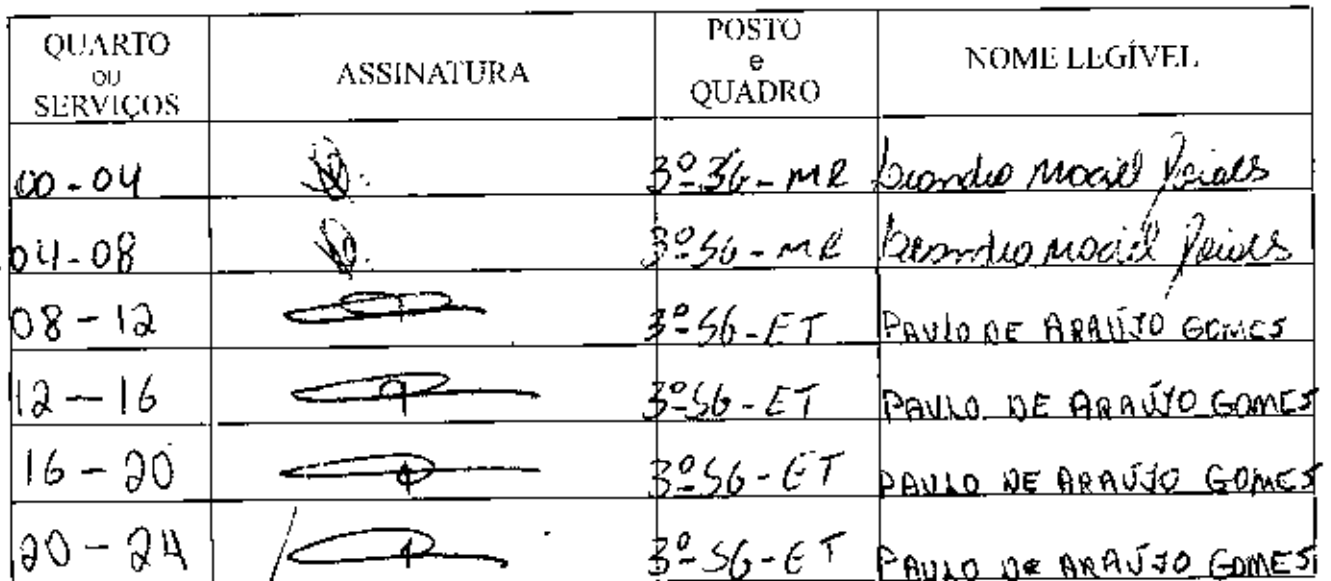 QUARTO OU SERVIÇOS ASSINATURA POSTO e QUADRO NOME LEGÍVEL
00-04 3º-SG-MR Leandro Maciel
04-08 3º-SG-MR Leandro Maciel
08-12 3º-SG-ET PAULO DE ARAÚJO GOMES
12-16 3º-SG-ET PAULO DE ARAÚJO GOMES
16-20 3º-SG-ET PAULO DE ARAÚJO GOMES
20-24 3º-SG-ET PAULO DE ARAÚJO GOMES